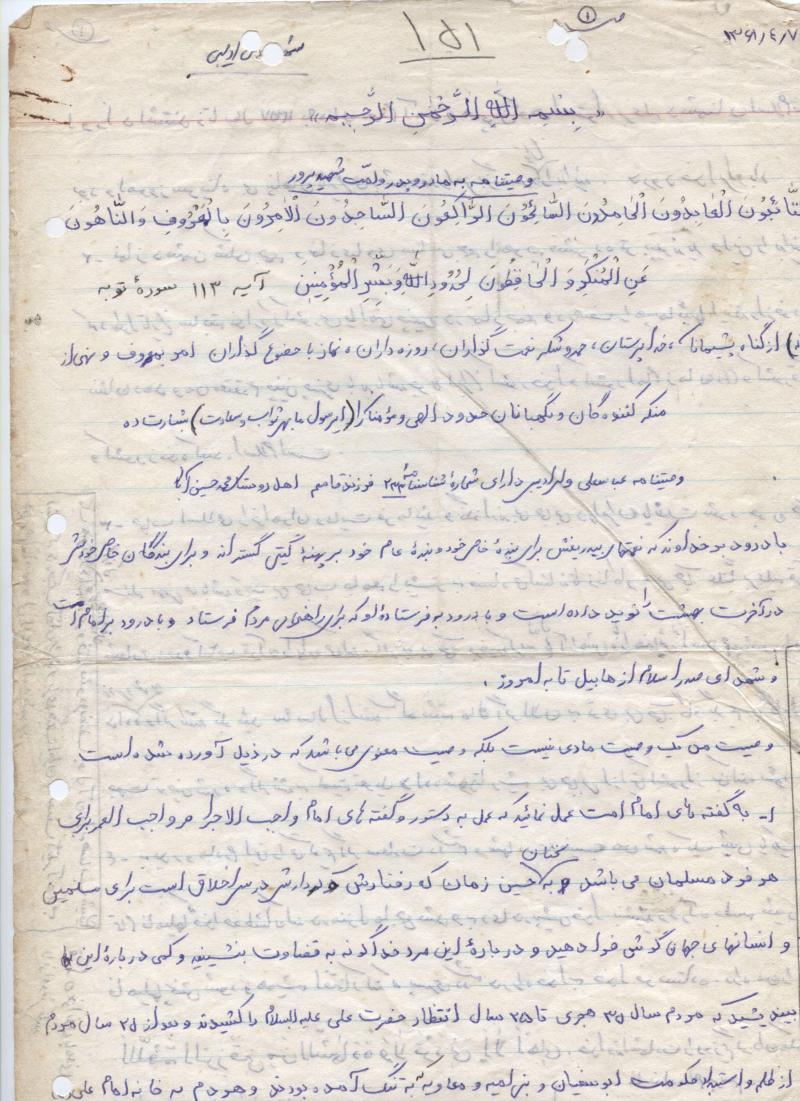 ۱۳۶۱/۴/۷
۱
۱۵۱
«بِسْمِ اللَّهِ الرَّحْمٰنِ الرَّحیم»
وصیتنامه به مادر و پدر و ملت شهید پرور
التَّائِبُونَ الْعَابِدُونَ الْحَامِدُونَ السَّائِحُونَ الرَّاكِعُونَ السَّاجِدُونَ الْآمِرُونَ بِالْمَعْرُوفِ وَالنَّاهُونَ
عَنِ الْمُنْكَرِ وَ الْحَافِظُونَ لِحُدُودِ اللَّهِ وَبَشِّرِ الْمُؤْمِنِينَ آیه ۱۱۳ سورهٔ توبه
از گناه پشیمانان، خداپرستان، حمد و شکر نعمت گذاران، روزه داران، نماز با خضوع گذاران امر بمعروف و نهی از
منکر کننده گان و نگهبانان حدود الهی و مؤمنان را (ای رسول ما بهر ثواب و سعادت) بشارت ده
وصیتنامه عباسعلی دارای شمارهٔ شناسنامهٔ ۲۳ فرزند قاسم اهل روستای محمد حسین آباد
با درود بر خداوند که نعمتهای بیدریغش برای بندهٔ خاص خود و بندهٔ عام خود بر پهنهٔ گیتی گسترانده و برای بندگان خاص خودش
در آخرت بهشت را نوید داده است و با درود به فرستادهٔ او که برای راهنمای مردم فرستاد و با درود بر امام امت
و شهدای صدر اسلام از هابیل تا به امروز.
وصیت من یک وصیت مادی نیست بلکه وصیت معنوی می باشد که در ذیل آورده شده است
۱- به گفته های امام امت عمل نمائید که عمل به دستور و گفته های امام واجب الاجرا و واجب العمر برای
هر فرد مسلمان می باشد و به سخنان حسین زمان که رفتارش و کردارش درس اخلاق است برای مسلمین
و انسانهای جهان گوش فرا دهید و دربارهٔ این مرد خداگونه به قضاوت بنشینید و کمی دربارهٔ این
بیندیشید که مردم سال ۳۵ هجری تا ۲۵ سال انتظار حضرت علی علیه السلام را کشیدند و بعد از ۲۵ سال مردم
از ظلم و استبداد حکومت ابوسفیان و بنی امیه و معاویه به تنگ آمده بودند و مردم به خانه امام علی